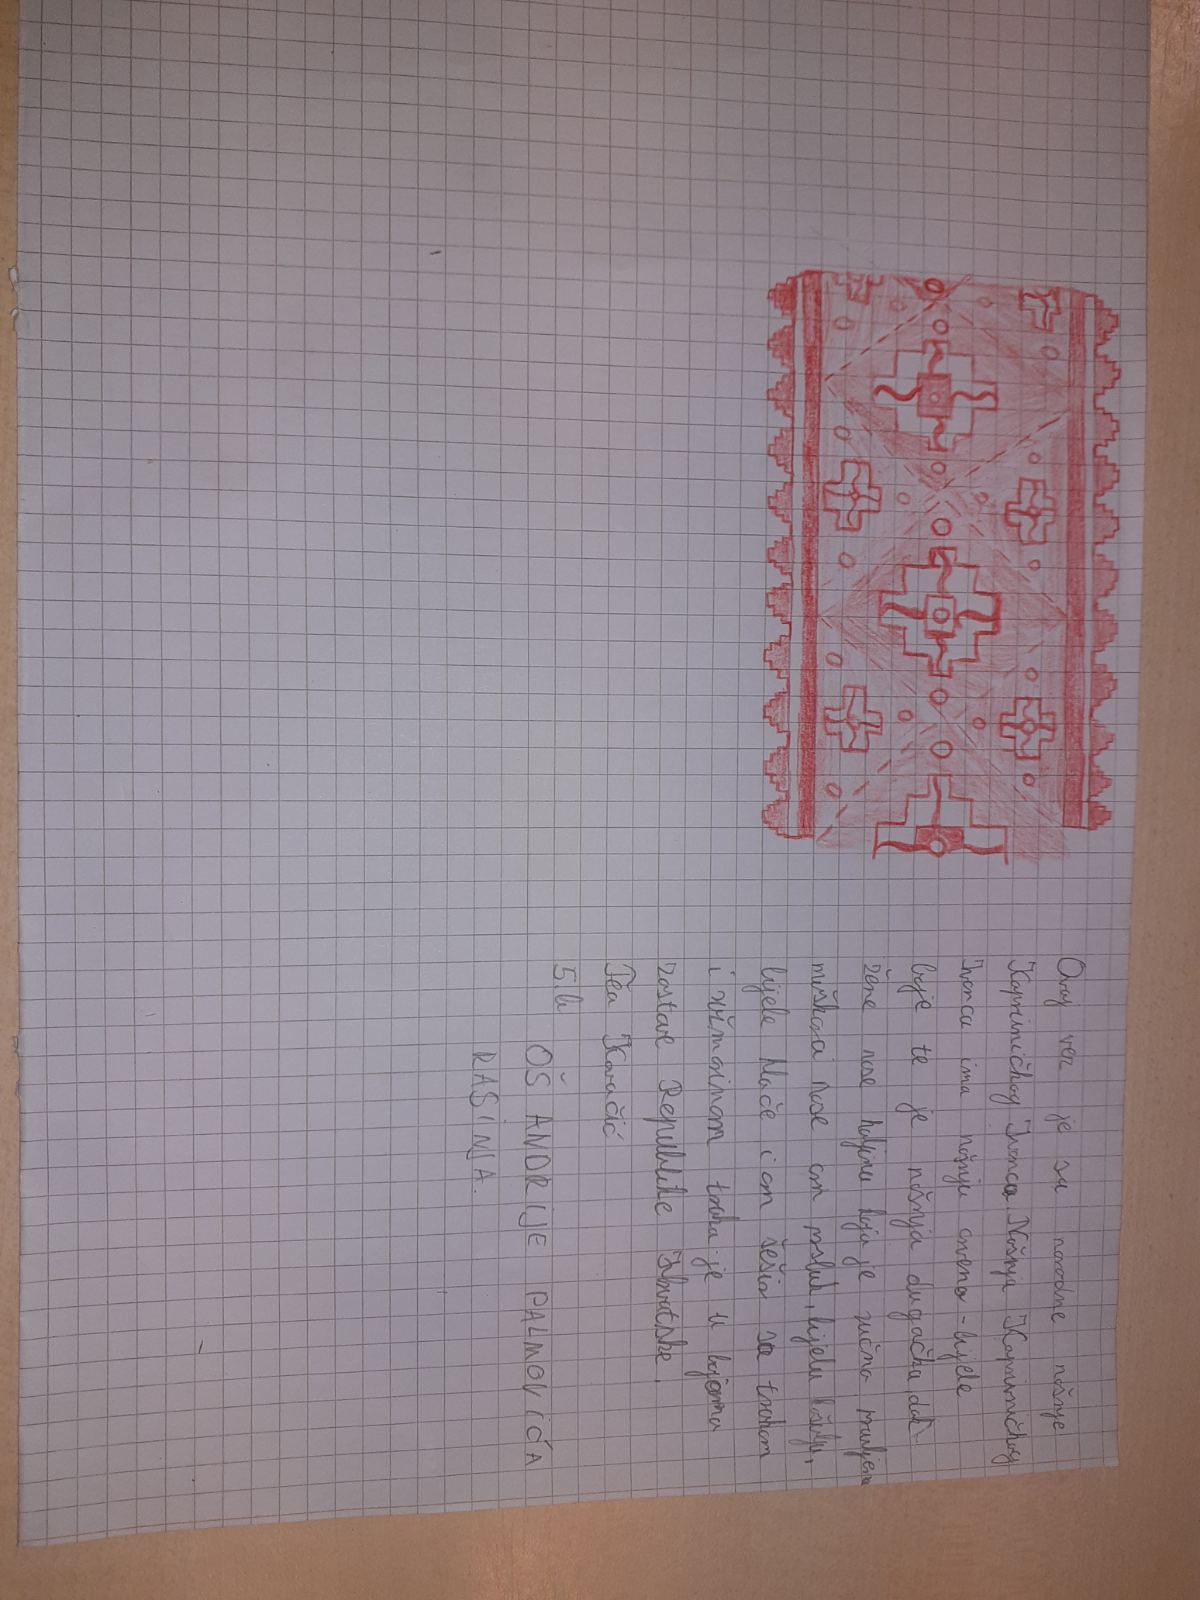 Ovaj vez je sa narodne nošnje
Koprivničkog Ivanca. Nošnja Koprivničkog
Ivanca ima nošnju crveno-bijele
boje te je nošnja dugačka, dok
žene nose haljinu koja je ručno pravljena
muškarci nose crn prsluk, bijelu košulju,
bijele hlače i crn šešir sa trakom
i traka je u bojama
zastave Republike Hrvatske.
Tea Kovačić
5.b
OŠ ANDRIJE PALMOVIĆA
RASINJA.